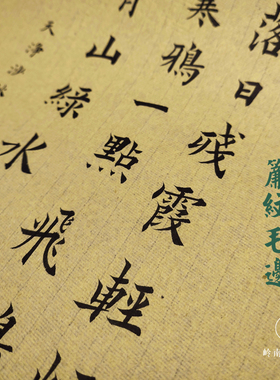 落日残霞輕
寒鴉一點飛
山綠水
天淨沙
簾紋毛邊
岭南